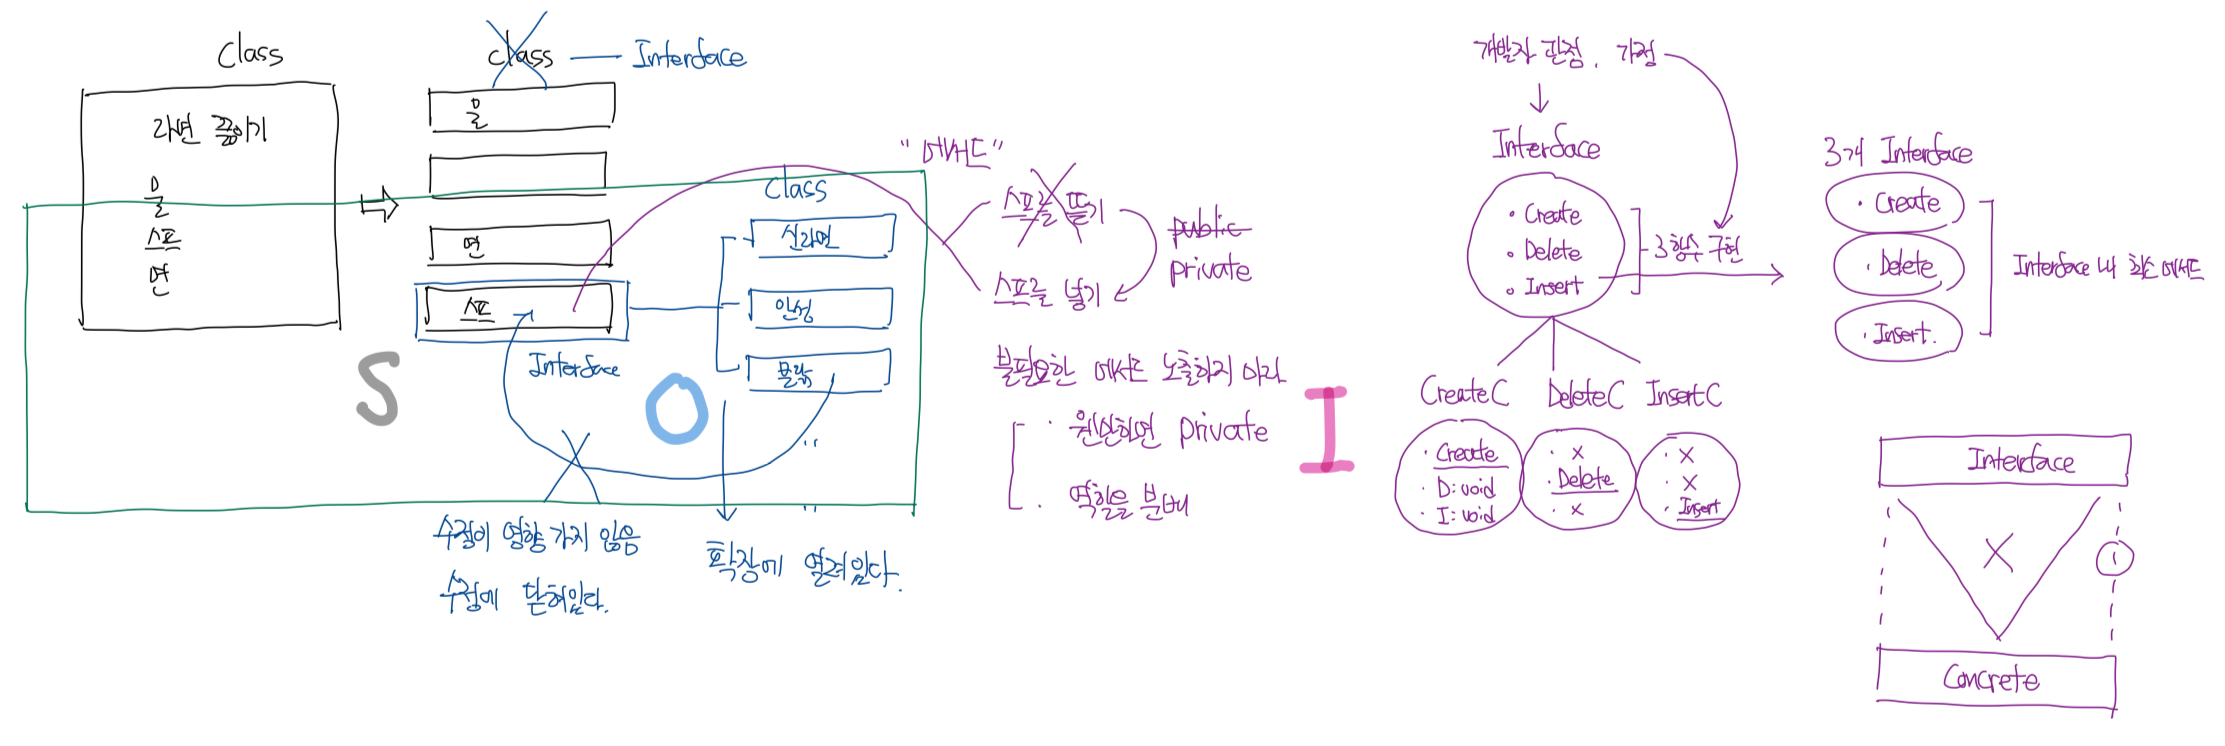 Class
라면 끓이기
물
스프
면
class
Interface
물
면
스프
Interface
S
O
Class
신라면
안성
불닭
수정이 영향 가지 않음
수정에 닫혀있다.
확장에 열려있다.
"메서드"
스프를 뜯기
스프를 넣기
public
private
불필요한 메서드 노출하지 마라
· 웬만하면 private
· 역할을 분배
I
개발자 관점, 가정
Interface
· Create
· Delete
· Insert
3함수 구현
CreateC
DeleteC
InsertC
· Create
· D: void
· I: void
· X
· Delete
· X
· X
· X
· Insert
3개 Interface
· Create
· Delete
· Insert.
Interface 내 최소 메서드
Interface
X
Concrete